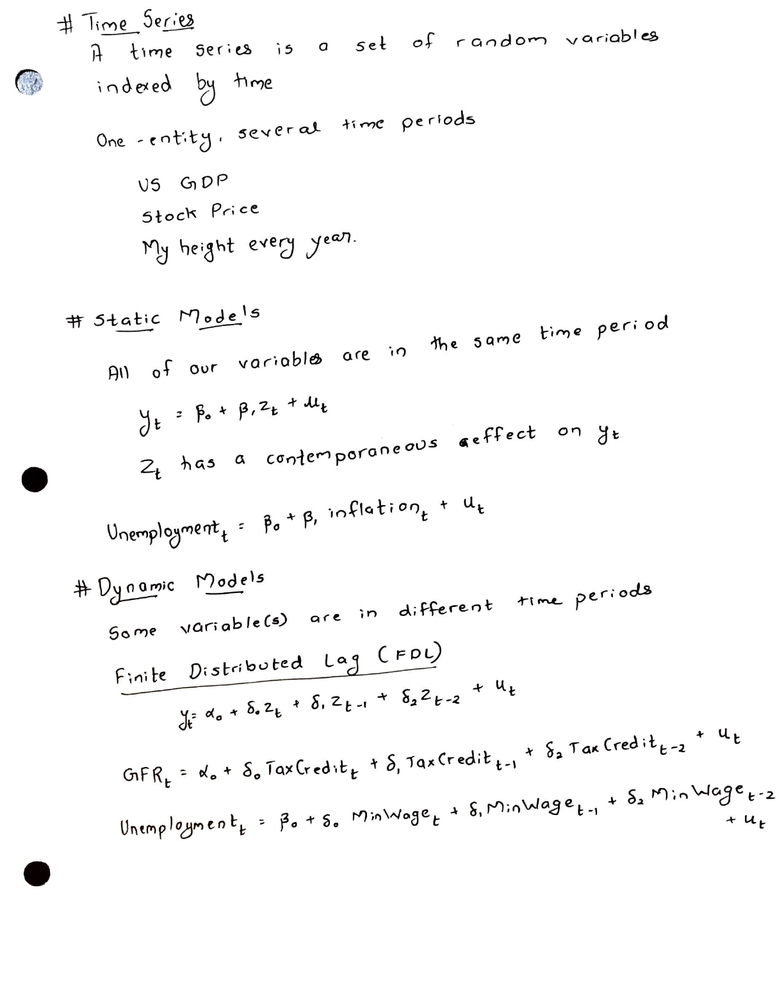 # Time Series
A time series is a set of random variables
indexed by time
One-entity, several time periods
US GDP
Stock Price
My height every year.
# Static Models
All of our variables are in the same time period
yₜ = β₀ + β₁zₜ + uₜ
Zₜ has a contemporaneous effect on yₜ
Unemploymentₜ = β₀ + β₁ inflationₜ + uₜ
# Dynamic Models
Some variable(s) are in different time periods
Finite Distributed Lag (FDL)
yₜ = α₀ + δ₀zₜ + δ₁zₜ₋₁ + δ₂zₜ₋₂ + uₜ
GFRₜ = α₀ + δ₀ TaxCreditₜ + δ₁ TaxCreditₜ₋₁ + δ₂ TaxCreditₜ₋₂ + uₜ
Unemploymentₜ = β₀ + δ₀ MinWageₜ + δ₁ MinWageₜ₋₁ + δ₂ MinWageₜ₋₂
+ uₜ